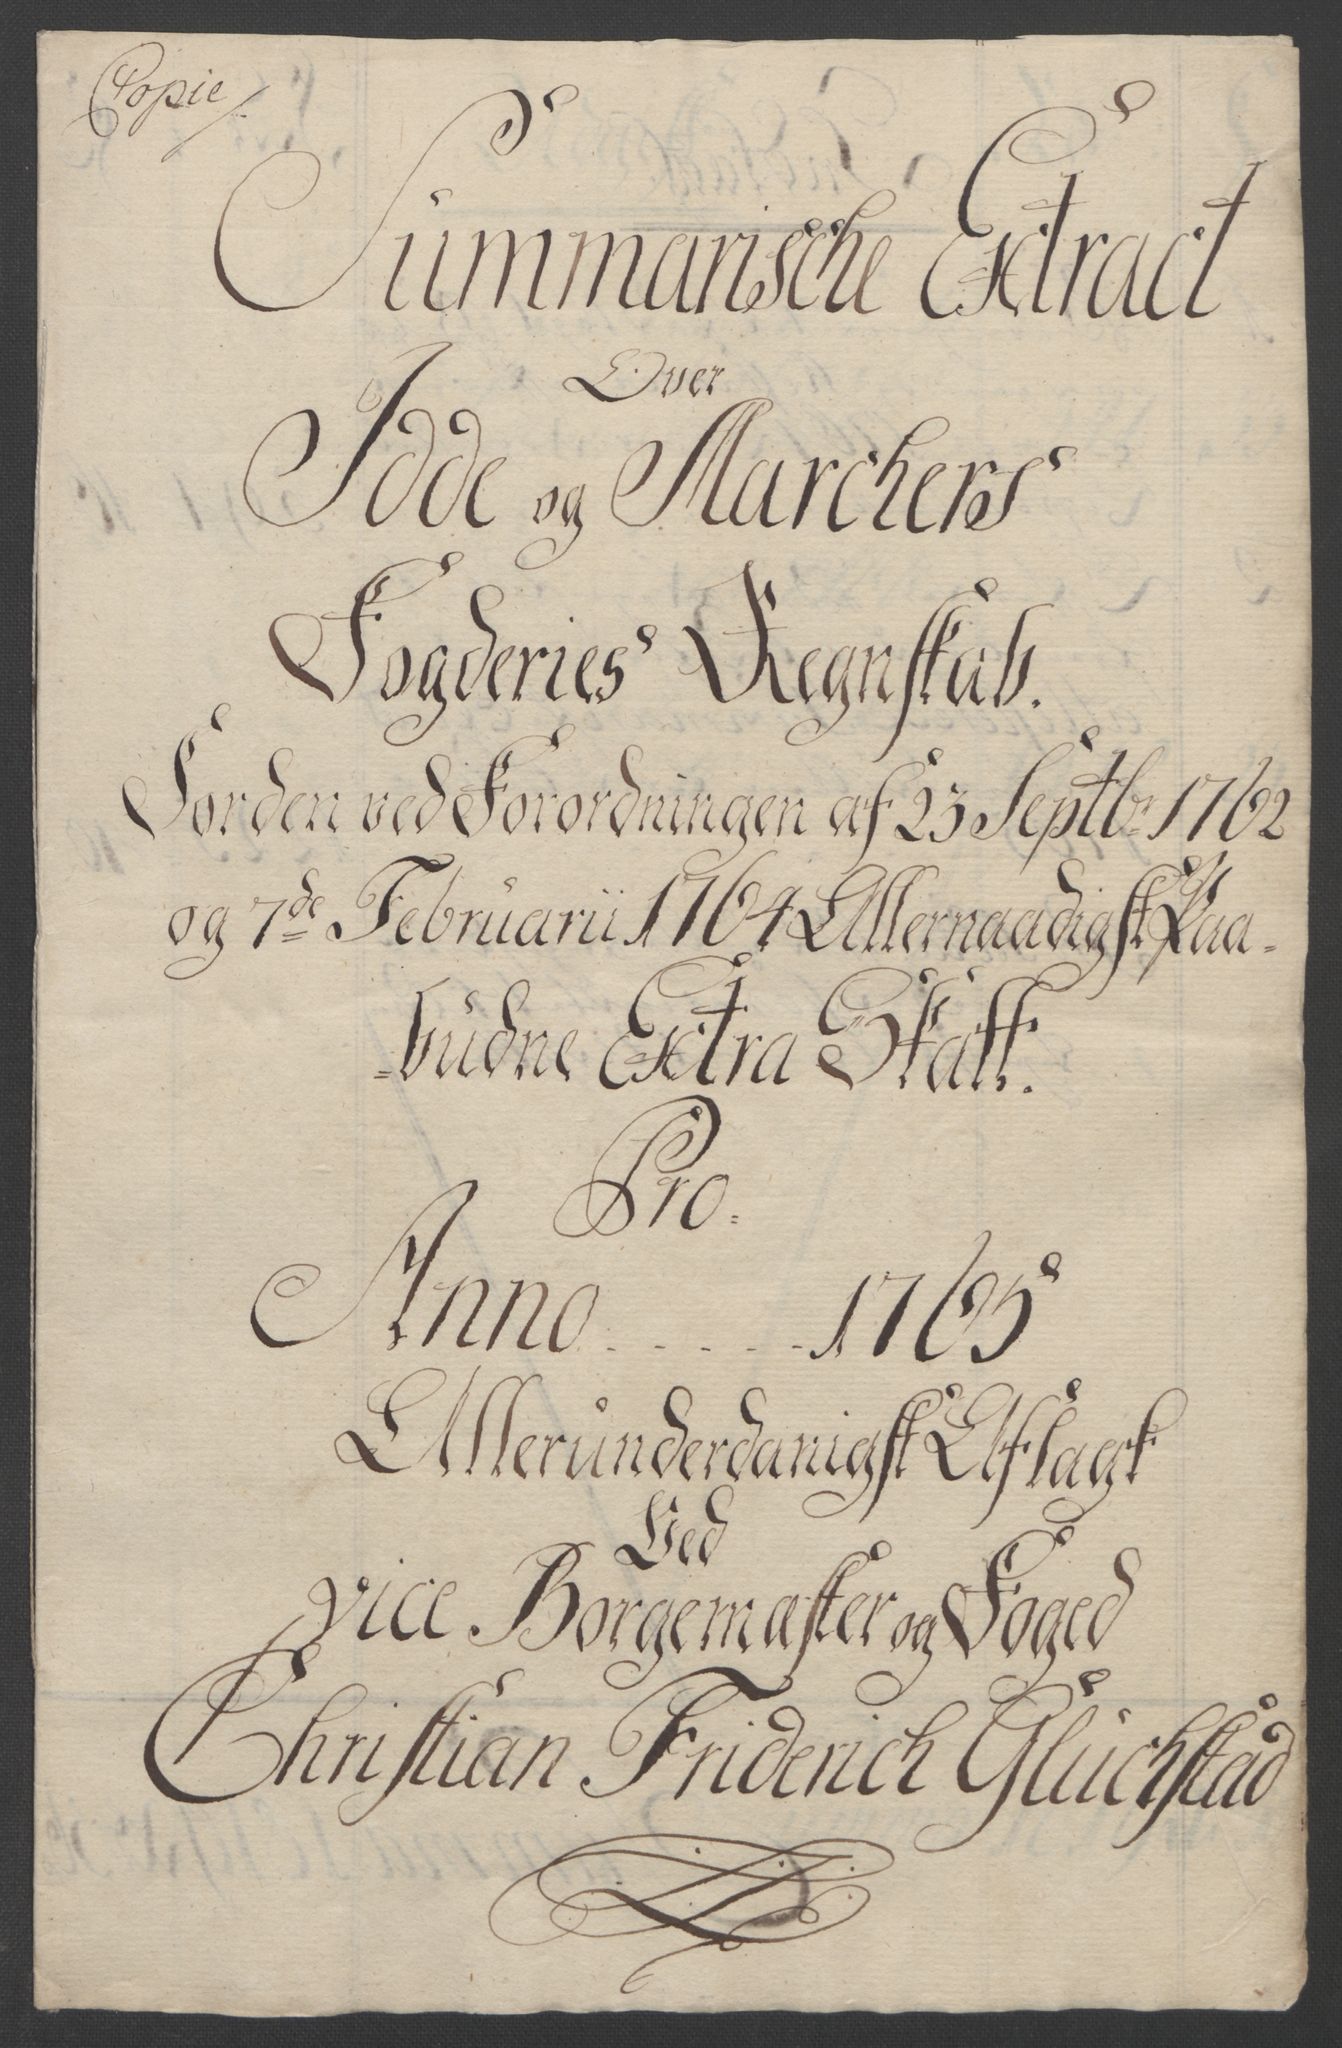 Copie
Summarische Extract
Over
Idde og Marchers
Fogderies Regnskab.
For den ved Forordningen af 23 Septbr 1762
og 7de Februarii 1764 Allernaadigst Paa-
-budne Extra Skatt.
Pro.
Anno . . . . . 1765
Allerunderdanigst Aflagt
Ved
vice Borgemæster og Foged
Christian Friderich Glüchstad